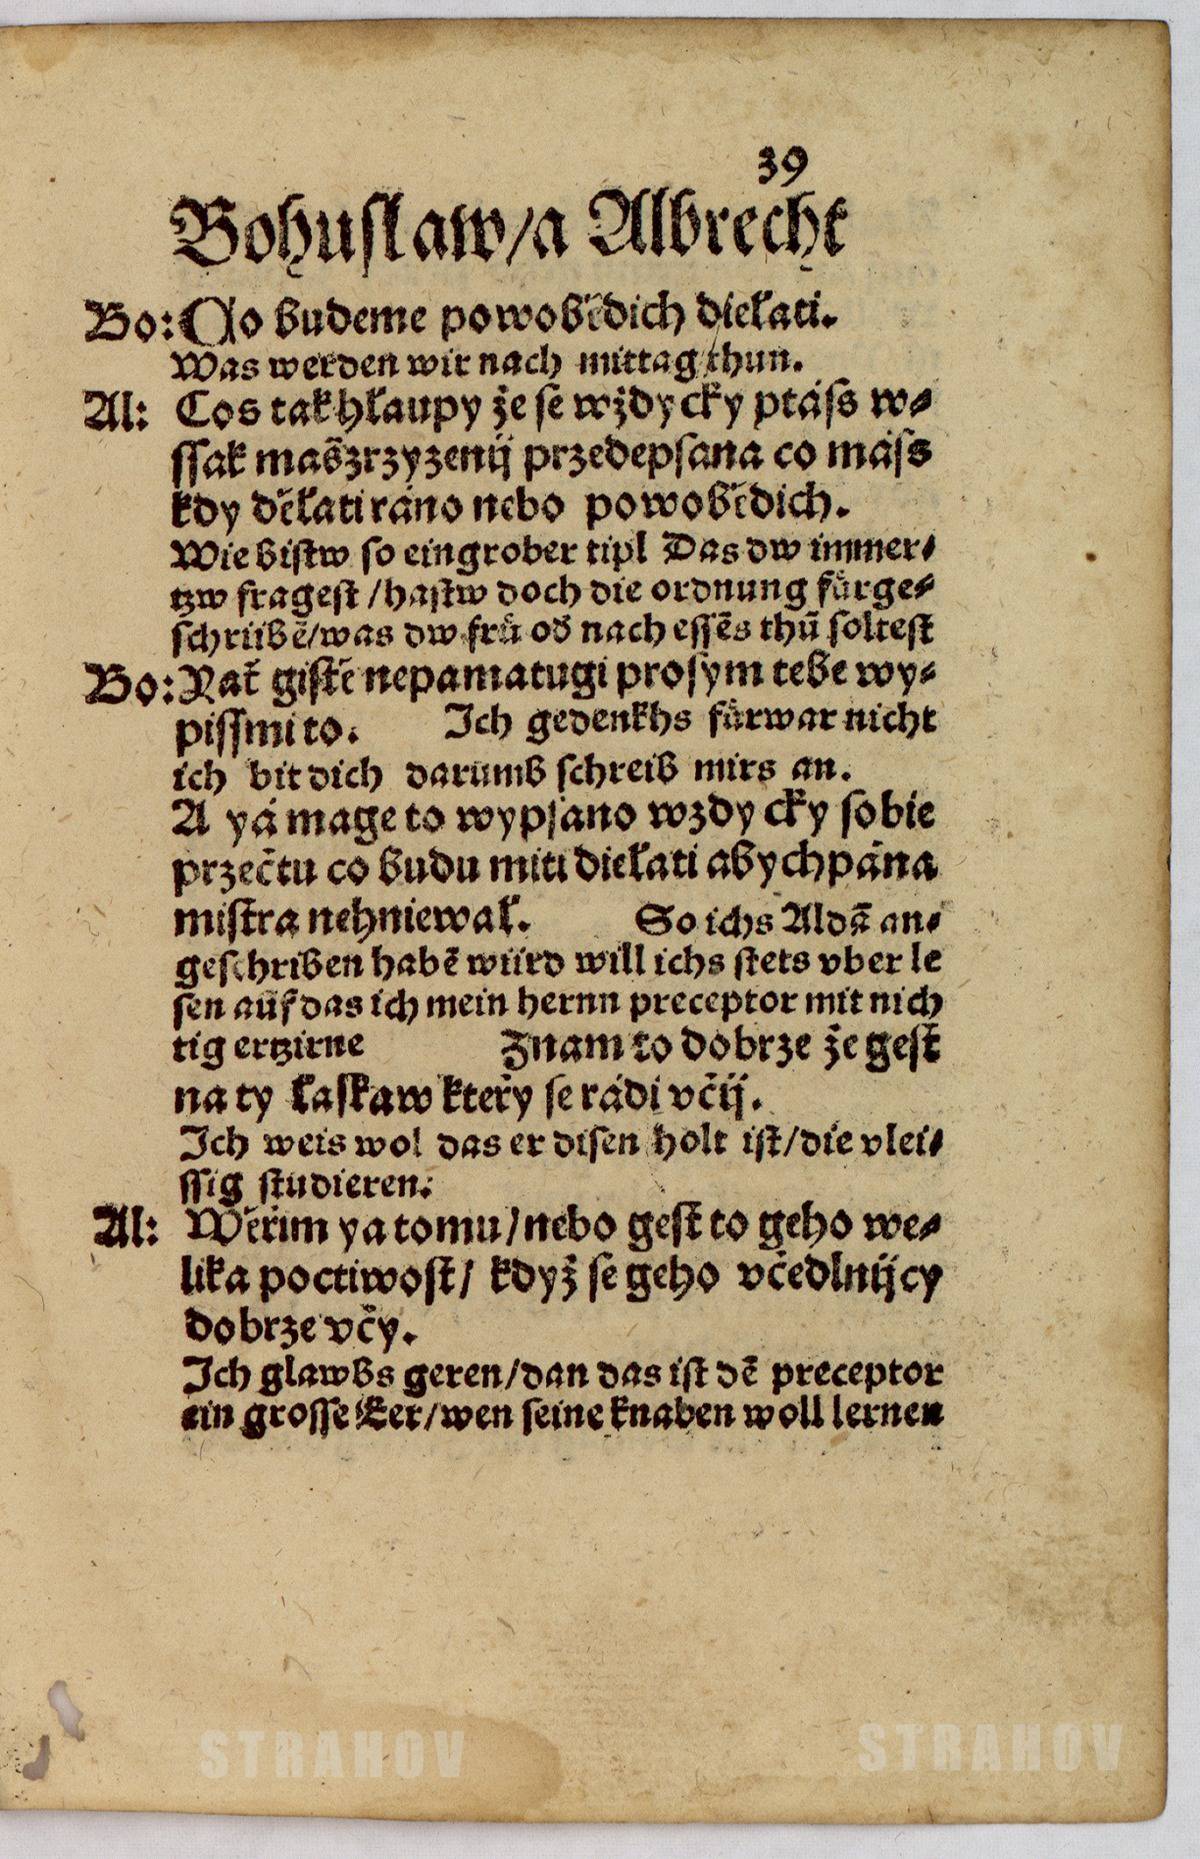 39
Bohuslaw/a Albrecht
Bo: Co budeme powobědich dielati.
Was werden wir nach mittag thun.
Al: Cos tak hlaupy že se wždycky ptáss w⸗
ssak maš zrzyzenij przedepsana co máss
kdy dělati ráno nebo powobědich.
Wie bistw so ein grober tipl Das dw immer⸗
tzw fragest/hastw doch die ordnung fürge⸗
schribē/was dw frü od nach essēs thū soltest
Bo: Rat gistě nepamatugi prosym tebe wy⸗
pissmi to. Ich gedenkhs fürwar nicht
ich bit dich darumb schreib mirs an.
A yá mage to wypsano wzdycky sobie
przečtu co budu miti dielati abych pána
mistra nehniewal. So ichs Aldā an⸗
geschriben habē würd will ichs stets vber le
sen auf das ich mein hernn preceptor mit nich
tig ertzirne Znam to dobrze že gest
na ty laskaw kteřy se rádi včij.
Ich weis wol das er disen holt ist/die vlei⸗
ssig studieren.
Al: Wěřim ya tomu/nebo gest to geho we⸗
lika poctiwost/ když se geho včedlnijcy
dobrze včy.
Ich glawbs geren/dan das ist dē preceptor
ein grosse Eer/wen seine knaben woll lernen
STRAHOV STRAHOV